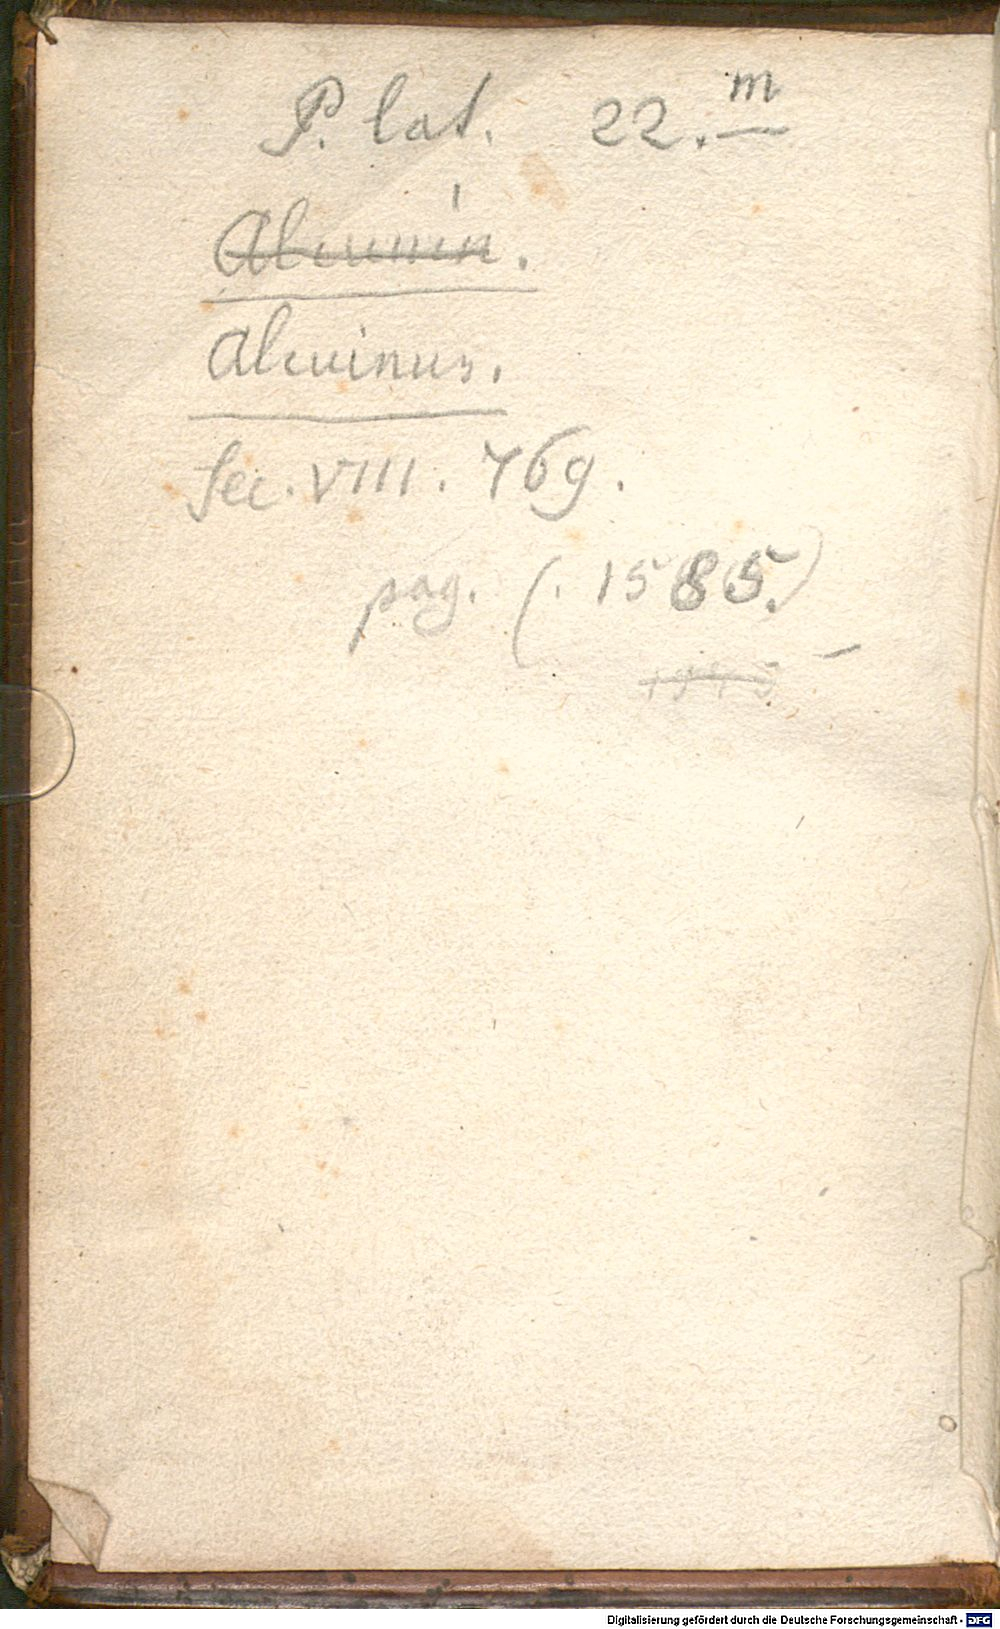 P. lat. 22.m
Alcuinus.
sec. VIII. 769.
pag. (. 1585.)
Digitalisierung gefördert durch die Deutsche Forschungsgemeinschaft - DFG